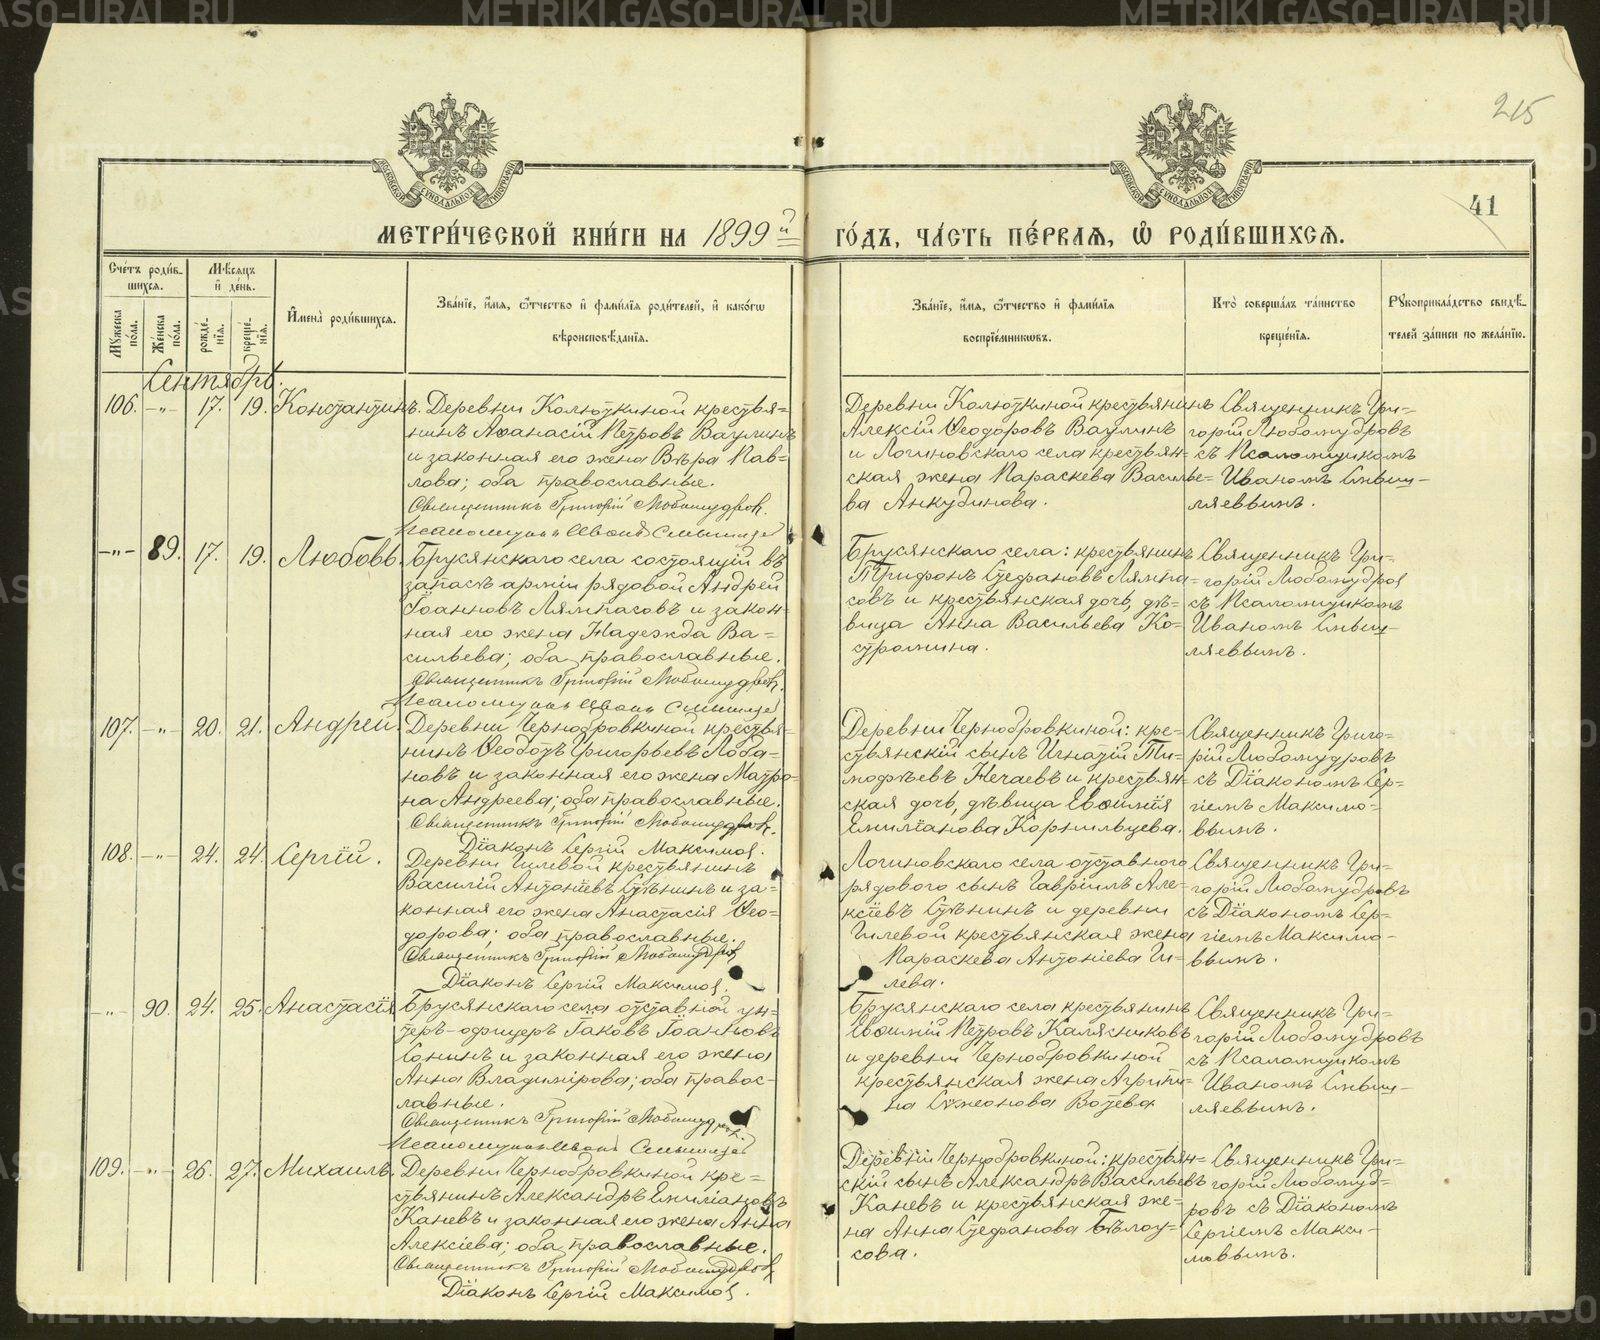 METRIKI.GASO-URAL.RU
215
41
МОСКОВСКОЙ СѴНОДАЛЬНОЙ ТИПОГРАФІИ
МОСКОВСКОЙ СѴНОДАЛЬНОЙ ТИПОГРАФІИ
МЕТРИ́ЧЕСКОЙ КНИ́ГИ НА 1899й ГО́ДЪ, ЧА́СТЬ ПЕ́РВАѦ, Ѡ РОДИ́ВШИХСѦ.
Сче́тъ роди́вшихсѧ.
Мꙋжеска по́ла.
Же́нска по́ла.
Мѣ́сѧцъ и҆ де́нь.
рожде́нїѧ.
креще́нїѧ.
И҆мена̀ роди́вшихсѧ.
Зва́нїе, и҆́мѧ, ѻ҆́тчество и҆ фами́лїѧ роди́телей, и҆ како́гѡ
вѣроисповѣ́данїѧ.
Зва́нїе, и҆́мѧ, ѻ҆́тчество и҆ фами́лїѧ
воспрїе́мникѡвъ.
Кто̀ соверша́лъ та́инство
креще́нїѧ.
Рꙋкоприкла́дство свидѣ́-
телей за́писи по жела́нїю.
Сентябрь.
106. -"- 17. 19. Константинъ.
Деревни Колюткиной крестья=
нинъ Аѳанасій Петровъ Ваулинъ
и законная его жена Вѣра Пав=
лова; оба православные.
Священникъ Григорій Любомудровъ.
Псаломщикъ Иванъ Смышляевъ
Деревни Колюткиной крестьянинъ
Алексій Ѳеодоровъ Ваулинъ
и Логиновскаго села крестьян=
ская жена Параскева Василье=
ва Анкудинова.
Священникъ Гри=
горій Любомудровъ
съ Псаломщикомъ
Иваномъ Смыш-
ляевымъ.
-"- 89. 17. 19. Любовь.
Брусянскаго села состоящій въ
запасѣ арміи рядовой Андрей
Іоанновъ Лямпасовъ и закон=
ная его жена Надежда Ва=
сильева; оба православные.
Священникъ Григорій Любомудровъ.
Псаломщикъ Иванъ Смышляевъ
Брусянскаго села: крестьянинъ
Трифонъ Стефановъ Лямпа=
совъ и крестьянская дочь, дѣ=
вица Анна Васильева Ко=
стромина.
Священникъ Гри=
горій Любомудровъ
съ Псаломщикомъ
Иваномъ Смыш-
ляевымъ.
107. -"- 20. 21. Андрей.
Деревни Чернобровкиной крестья=
нинъ Ѳеодотъ Григорьевъ Лоба=
новъ и законная его жена Матро=
на Андреева; оба православные.
Священникъ Григорій Любомудровъ.
Діаконъ Сергій Максимовъ.
Деревни Чернобровкиной: кре=
стьянскій сынъ Игнатій Ти=
моѳѣевъ Нечаевъ и крестьян=
ская дочь, дѣвица Евѳимія
Емиліанова Корнильцева.
Священникъ Григо=
рій Любомудровъ
съ Діакономъ Сер=
гіемъ Максимо=
вымъ.
108. -"- 24. 24. Сергій.
Деревни Гилевой крестьянинъ
Василій Антоніевъ Стѣнинъ и за=
конная его жена Анастасія Ѳео=
дорова; оба православные.
Священникъ Григорій Любомудровъ
Діаконъ Сергій Максимовъ.
Логиновскаго села отставного
рядового сынъ Гавріилъ Але=
ксіевъ Стѣнинъ и деревни
Гилевой крестьянская жена
Параскева Антоніева Ги=
лева.
Священникъ Гри=
горій Любомудровъ
съ Діакономъ Сер=
гіемъ Максимо-
вымъ.
-"- 90. 24. 25. Анастасія
Брусянскаго села отставной ун=
теръ-офицеръ Іаковъ Іоанновъ
Санинъ и законная его жена
Анна Владимірова; оба правос-
лавные.
Священникъ Григорій Любомудровъ.
Псаломщикъ Иванъ Смышляевъ
Брусянскаго села крестьянинъ
Евѳимій Петровъ Калясниковъ
и деревни Чернобровкиной
крестьянская жена Агрипи=
на Симеонова Вотева
Священникъ Гри=
горій Любомудровъ
съ Псаломщикомъ
Иваномъ Смыш-
ляевымъ.
109. -"- 26. 27. Михаилъ.
Деревни Чернобровкиной кре=
стьянинъ Александръ Емиліановъ
Каневъ и законная его жена Анна
Алексіева; оба православные.
Священникъ Григорій Любомудровъ
Діаконъ Сергій Максимовъ.
Деревни Чернобровкиной: крестьян=
скій сынъ Александръ Васильевъ
Каневъ и крестьянская же=
на Анна Стефанова Бѣлоу=
сова.
Священникъ Гри=
горій Любомуд=
ровъ съ Діакономъ
Сергіемъ Макси-
мовымъ.